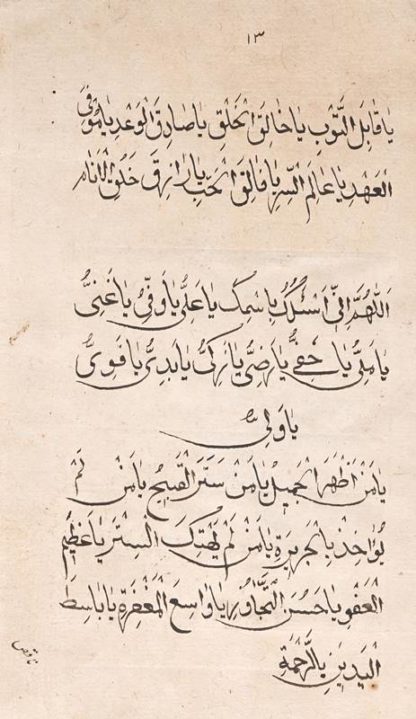 ١٣
يَا قَابِلَ التَّوْبِ يَا خَالِقَ الْخَلْقِ يَا صَادِقَ الْوَعْدِ يَا مُوفِيَ
الْعَهْدِ يَا عَالِمَ السِّرِّ يَا فَالِقَ الْحَبِّ يَا رَازِقَ خَلْقِ الْأَنَامِ
اَللّٰهُمَّ اِنِّي اَسْئَلُكَ بِاسْمِكَ يَا عَلِيُّ يَا وَفِيُّ يَا غَنِيُّ
يَا مَلِيُّ يَا حَفِيُّ يَا رَضِيُّ يَا زَكِيُّ يَا بَدِيُّ يَا قَوِيُّ
يَا وَلِيُّ
يَا مَنْ اَظْهَرَ الْجَمِيلَ يَا مَنْ سَتَرَ الْقَبِيحَ يَا مَنْ لَمْ
يُؤَاخِذْ بِالْجَرِيرَةِ يَا مَنْ لَمْ يَهْتِكَ السِّتْرَ يَا عَظِيمَ
الْعَفْوِ يَا حَسَنَ التَّجَاوُزِ يَا وَاسِعَ الْمَغْفِرَةِ يَا بَاسِطَ
الْيَدَيْنِ بِالرَّحْمَةِ